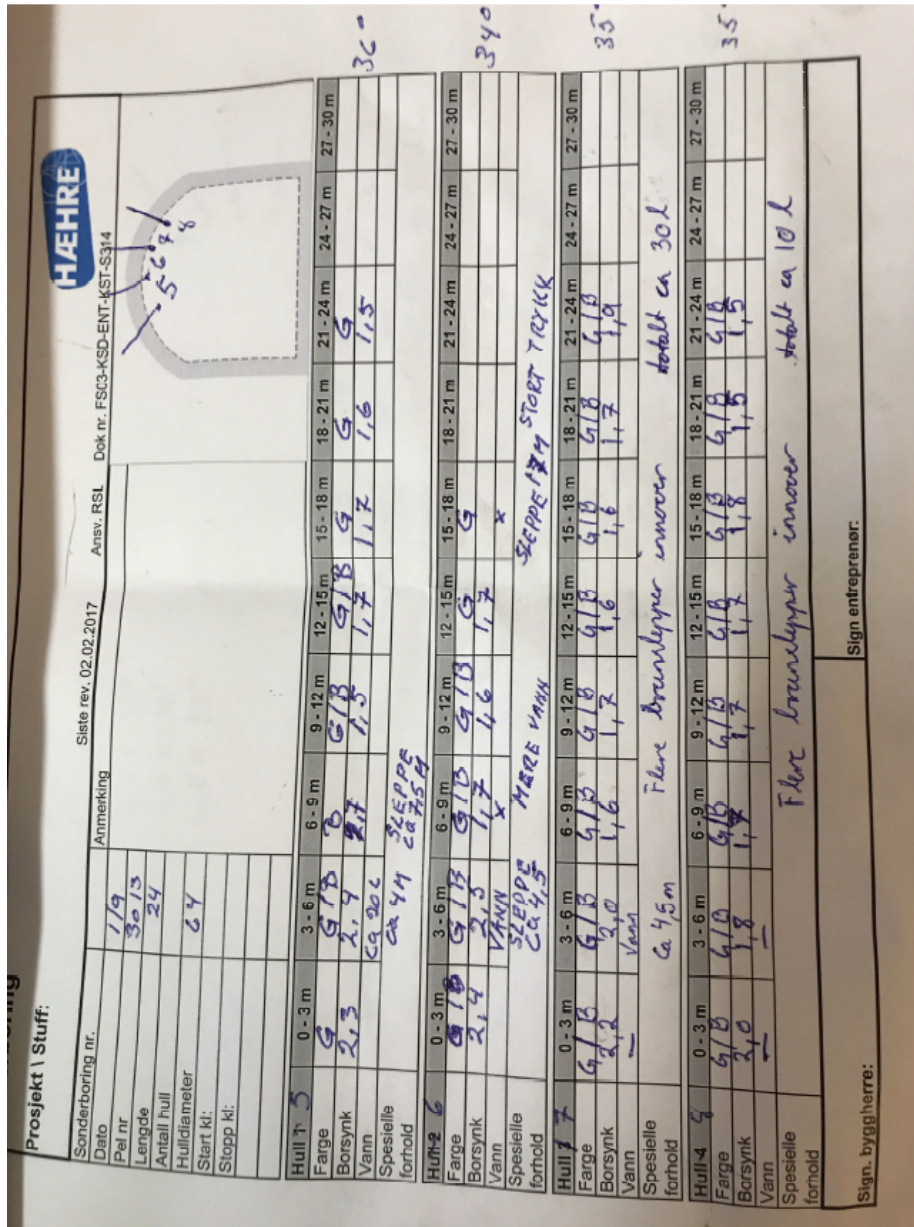 Prosjekt \ Stuff:
HÆHRE
Sonderboring nr. Siste rev. 02.02.2017 Ansv. RSL Dok nr. FS03-KSD-ENT-KST-S314
Dato 1/9 Anmerking
Pel nr 3013
Lengde 24
Antall hull
Hulldiameter 64
Start kl:
Stopp kl:
5 6 7 8
Hull 1 5 0 - 3 m 3 - 6 m 6 - 9 m 9 - 12 m 12 - 15 m 15 - 18 m 18 - 21 m 21 - 24 m 24 - 27 m 27 - 30 m
Farge G G/B B G/B G/B G G G
Borsynk 2,3 2,4 2,7 1,5 1,7 1,7 1,6 1,5 36°
Vann ca 20 L
Spesielle forhold ca 4 M SLEPPE ca 7,5 M
Hull 2 6 0 - 3 m 3 - 6 m 6 - 9 m 9 - 12 m 12 - 15 m 15 - 18 m 18 - 21 m 21 - 24 m 24 - 27 m 27 - 30 m
Farge G/B G/B G/B G/B G G
Borsynk 2,4 2,3 1,7 1,7 x 34°
Vann VANN x
Spesielle forhold SLEPPE ca 4,5 MERE VANN SLEPPE 17 M STORT TRYKK
Hull 7 0 - 3 m 3 - 6 m 6 - 9 m 9 - 12 m 12 - 15 m 15 - 18 m 18 - 21 m 21 - 24 m 24 - 27 m 27 - 30 m
Farge G/B G/B G/B G/B G/B G/B G/B G/B
Borsynk 2,2 2,0 1,6 1,7 1,6 1,6 1,7 1,9 35°
Vann – Vann
Spesielle forhold Ca 4,5 m Flere innover totalt ca 30 l
Hull 4 8 0 - 3 m 3 - 6 m 6 - 9 m 9 - 12 m 12 - 15 m 15 - 18 m 18 - 21 m 21 - 24 m 24 - 27 m 27 - 30 m
Farge G/B G/B G/B G/B G/B G/B G/B G/B
Borsynk 2,0 1,8 1,7 1,7 1,8 1,5 1,5 35°
Vann – –
Spesielle forhold Flere innover totalt ca 10 l
Sign. byggherre: Sign entreprenør: